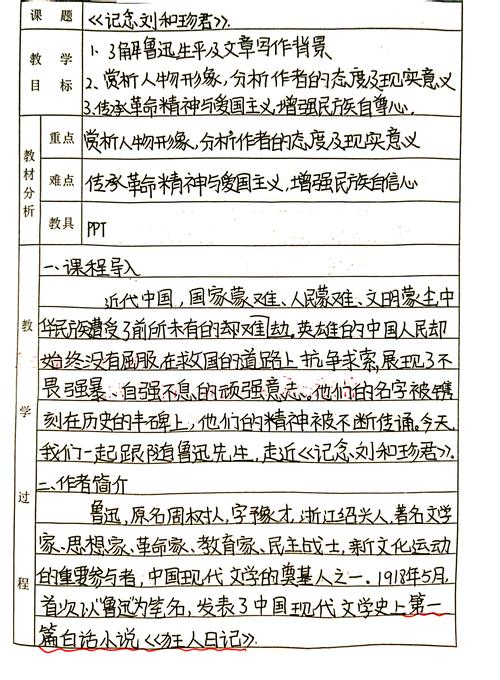 课题 《记念刘和珍君》.
教学目标 1. 了解鲁迅生平及文章写作背景
2. 赏析人物形象,分析作者的态度及现实意义
3. 传承革命精神与爱国主义,增强民族自尊心.
教材分析
重点 赏析人物形象,分析作者的态度及现实意义
难点 传承革命精神与爱国主义,增强民族自信心
教具 PPT
教学过程
一、课程导入
近代中国,国家蒙难、人民蒙难、文明蒙尘,中
华民族遭受了前所未有的劫难。英雄的中国人民却
始终没有屈服,在救国的道路上抗争求索,展现了不
畏强暴、自强不息的顽强意志。他们的名字被镌
刻在历史的丰碑上,他们的精神被不断传诵。今天,
我们一起跟随鲁迅先生,走近《记念刘和珍君》.
二、作者简介
鲁迅,原名周树人,字豫才,浙江绍兴人,著名文学
家、思想家、革命家、教育家、民主战士,新文化运动
的重要参与者,中国现代文学的奠基人之一.1918年5月,
首次以“鲁迅”为笔名,发表了中国现代文学史上第一
篇白话小说《狂人日记》.